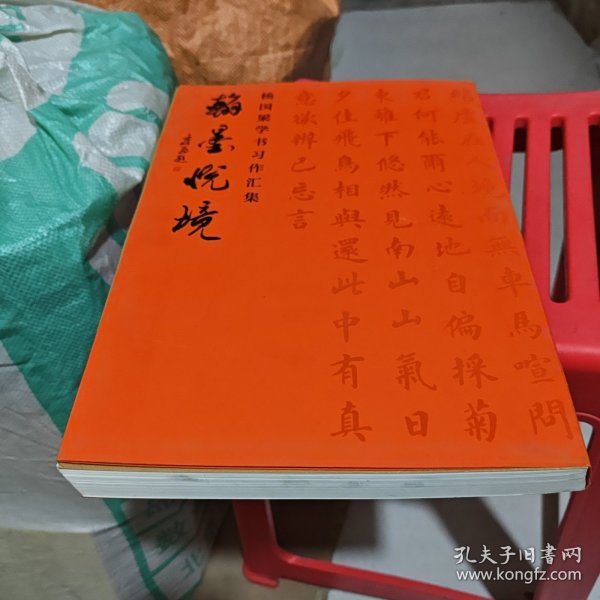 結廬在人境而無車馬喧問
君何能爾心遠地自偏採菊
東籬下悠然見南山山氣日
夕佳飛鳥相與還此中有真
意欲辨已忘言
杨国梁学书习作汇集
翰墨悦境
孔夫子旧书网
www.kongfz.com